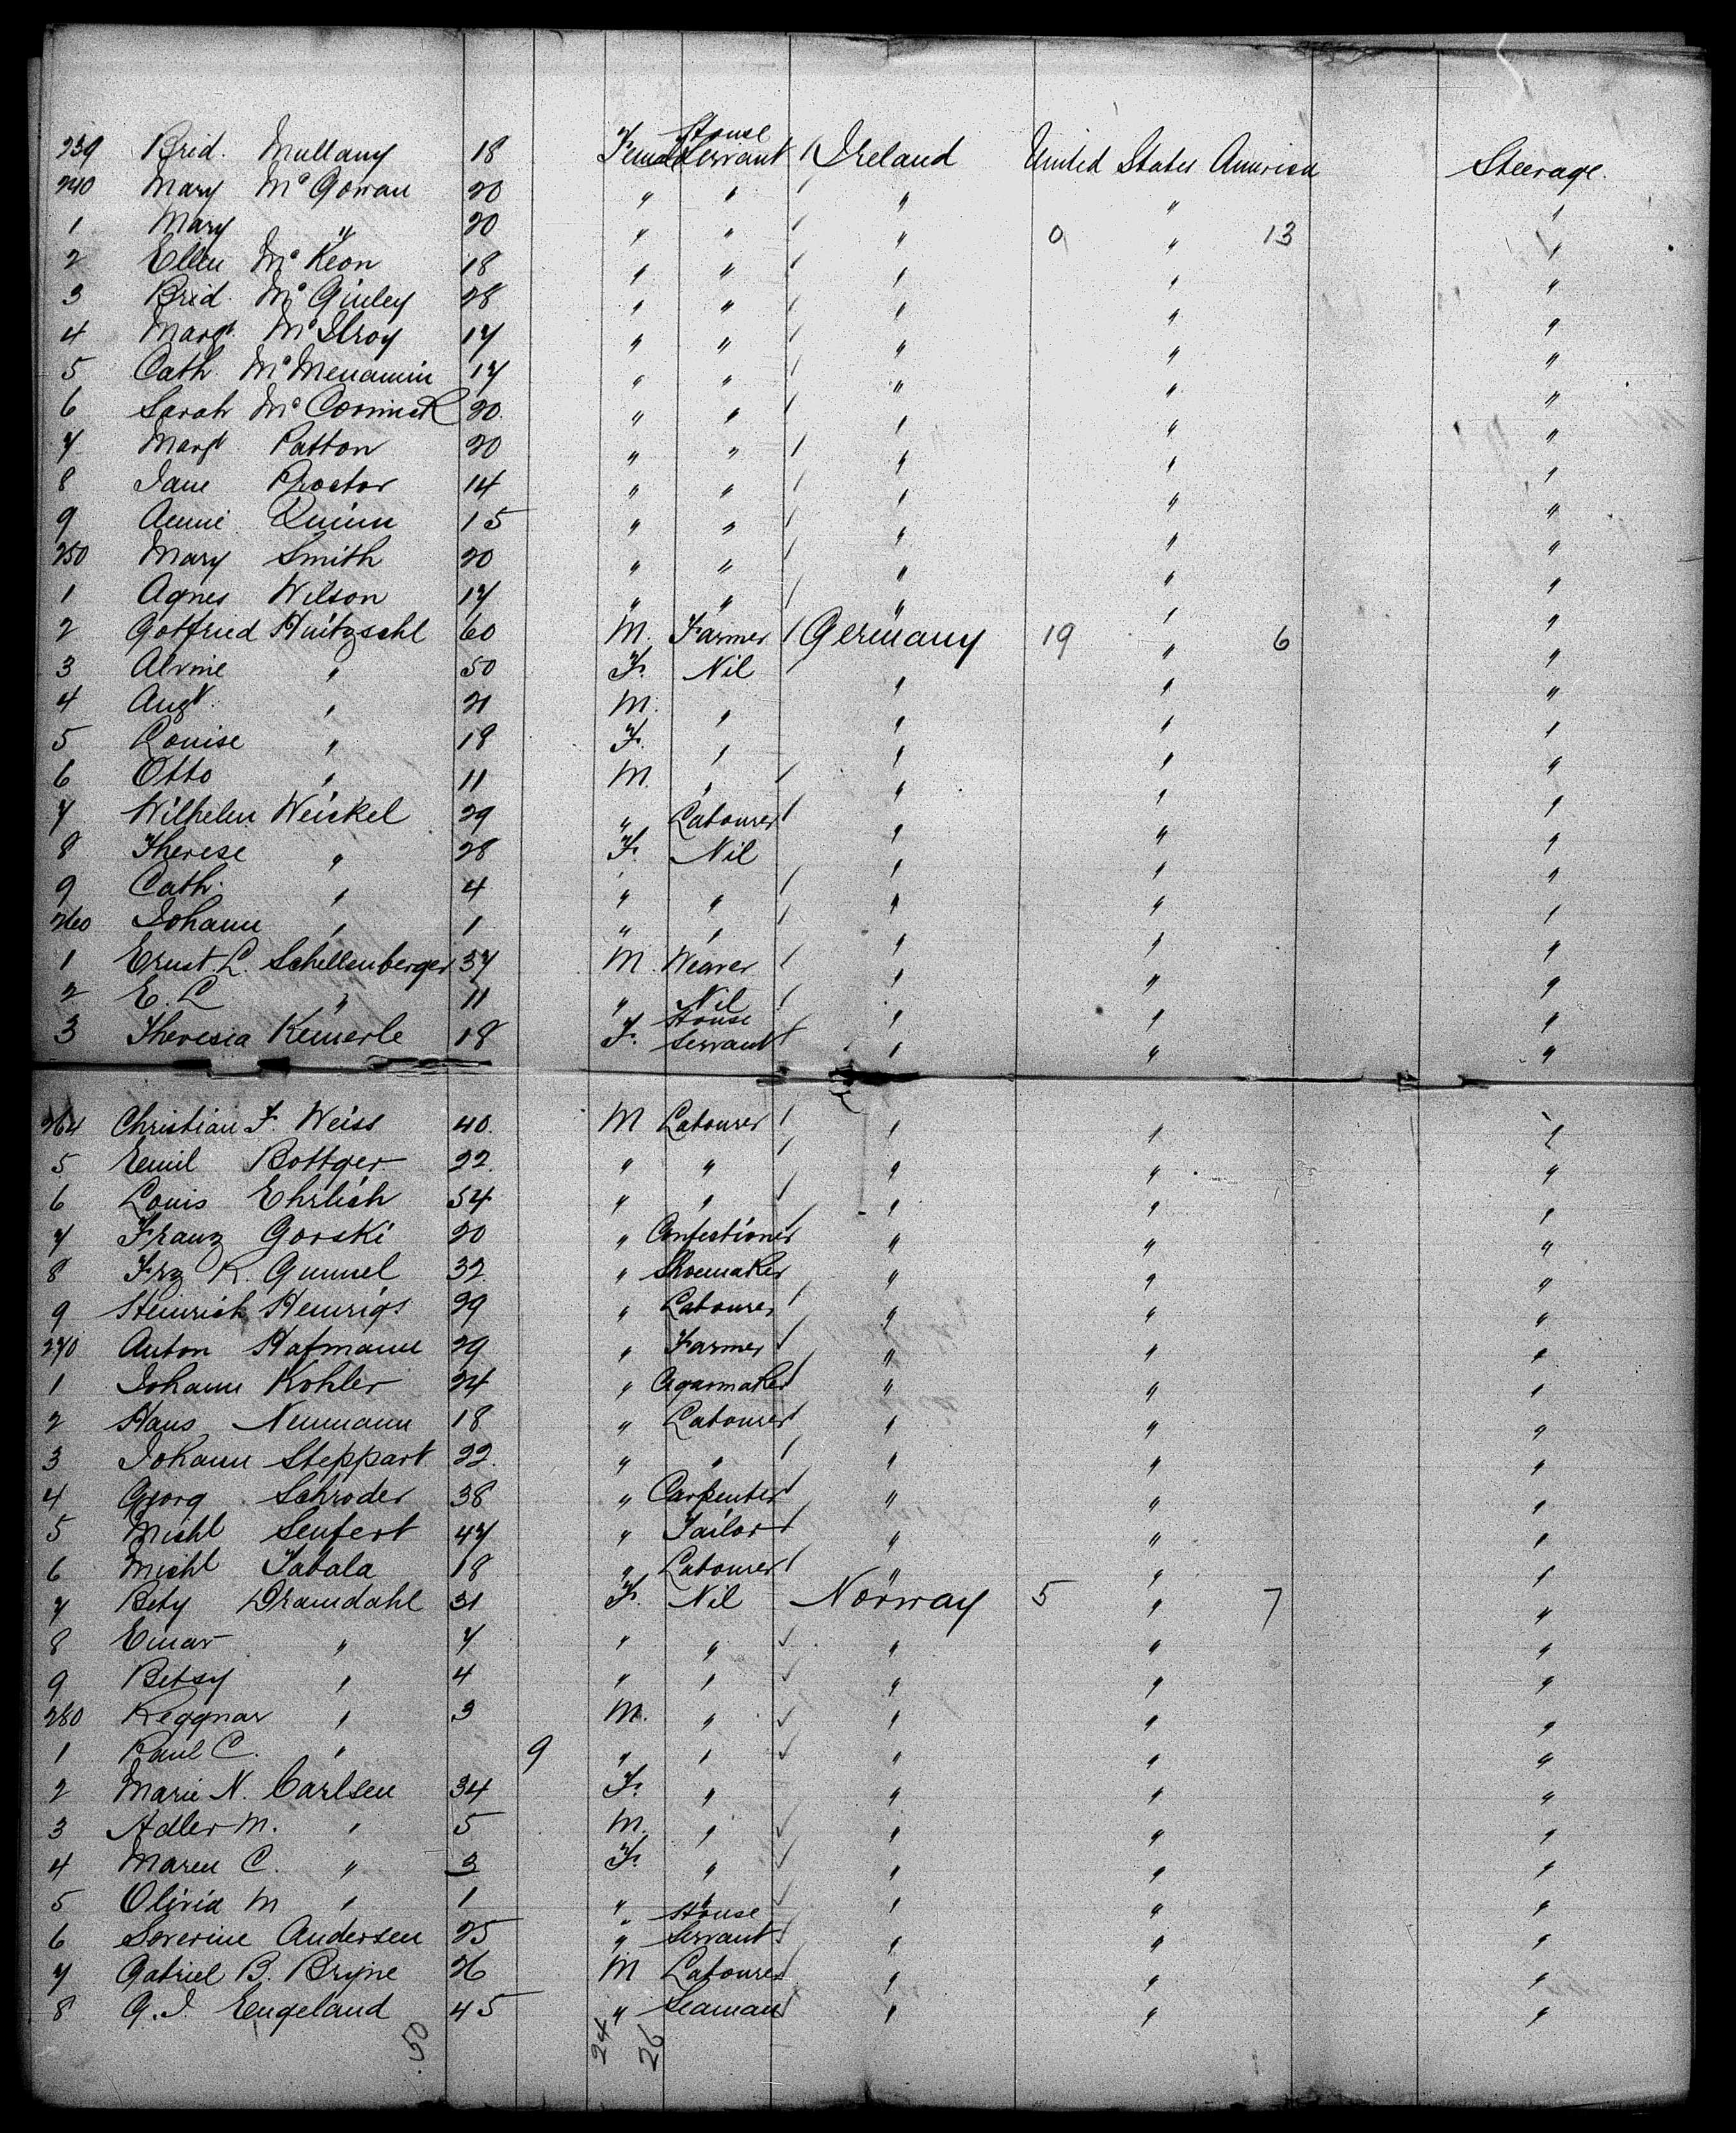 239 Brid. Mullany 18 Female House Servant / Ireland United States America Steerage.
240 Mary McGowan 20 " " / " " "
1 Mary " 20 " " / " 0 " 13 "
2 Ellen McKeon 18 " " / " " "
3 Brid. McGinley 28 " " / " " "
4 Margt. McIlroy 17 " " / " " "
5 Cath. McMenamin 17 " " / " " "
6 Sarah McCormick 20. " " / " " "
7 Margt Patton 20 " " / " " "
8 Jane Proctor 14 " " / " " "
9 Annie Quinn 15 " " / " " "
250 Mary Smith 20 " " / " " "
1 Agnes Wilson 17 " " / " " "
2 Gotfried 60 M. Farmer / Germany 19 " 6 "
3 " 50 F. Nil " " "
4 Augt. " 21 M. " " " "
5 Louise " 18 F. " " " "
6 Otto " 11 M. " / " " "
7 Wilhelm Weickel 29 " Labourer / " " "
8 Therese " 28 F. Nil " " "
9 Cath. " 4 " " / " " "
260 Johann " 1 " " / " " "
1 Ernst. L. Schellenberger 37 M. Weaver / " " "
2 E. L " 11 " Nil / " " "
3 Theresia Kemerle 18 F. House Servant / " " "
264 Christian F. Weiss 40. M Labourer / " " "
5 Emil Bottger 22. " " / " " "
6 Louis Ehrlich 54 " " / " " "
7 Franz Gorski 20 " Confectioner / " " "
8 Frz K. Gummel 32 " Shoemaker " " "
9 Heinrich Henrigs 29 " Labourer / " " "
270 Anton Hafmann 29 " Farmer / " " "
1 Johann Kohler 24 " Cigarmaker / " " "
2 Hans Neumann 18 " Labourer / " " "
3 Johann Steppart 22. " " / " " "
4 Georg Schroder 38 " Carpenter / " " "
5 Michl Senfert 47 " Tailor / " " "
6 Michl Tabala 18 " Labourer / " " "
7 Bety Dramdahl 31 F. Nil Norway 5 " 7 "
8 Einar " 7 " " / " " "
9 Betsy " 4 " " / " " "
280 Reggnar " 3 M. " / " " "
1 Paul C. " 9 " " / " " "
2 Marie N. Carlsen 34 F. " " " "
3 Adler M. " 5 M. " / " " "
4 Maren C. " 3 F. " / " " "
5 Olivia M " 1 " " / " " "
6 Severine Andersen 25 " House Servant / " " "
7 Gabriel B. Bryne 26 M Labourer / " " "
8 G. J. Engeland 45 " Seaman / " " "
50 24 26